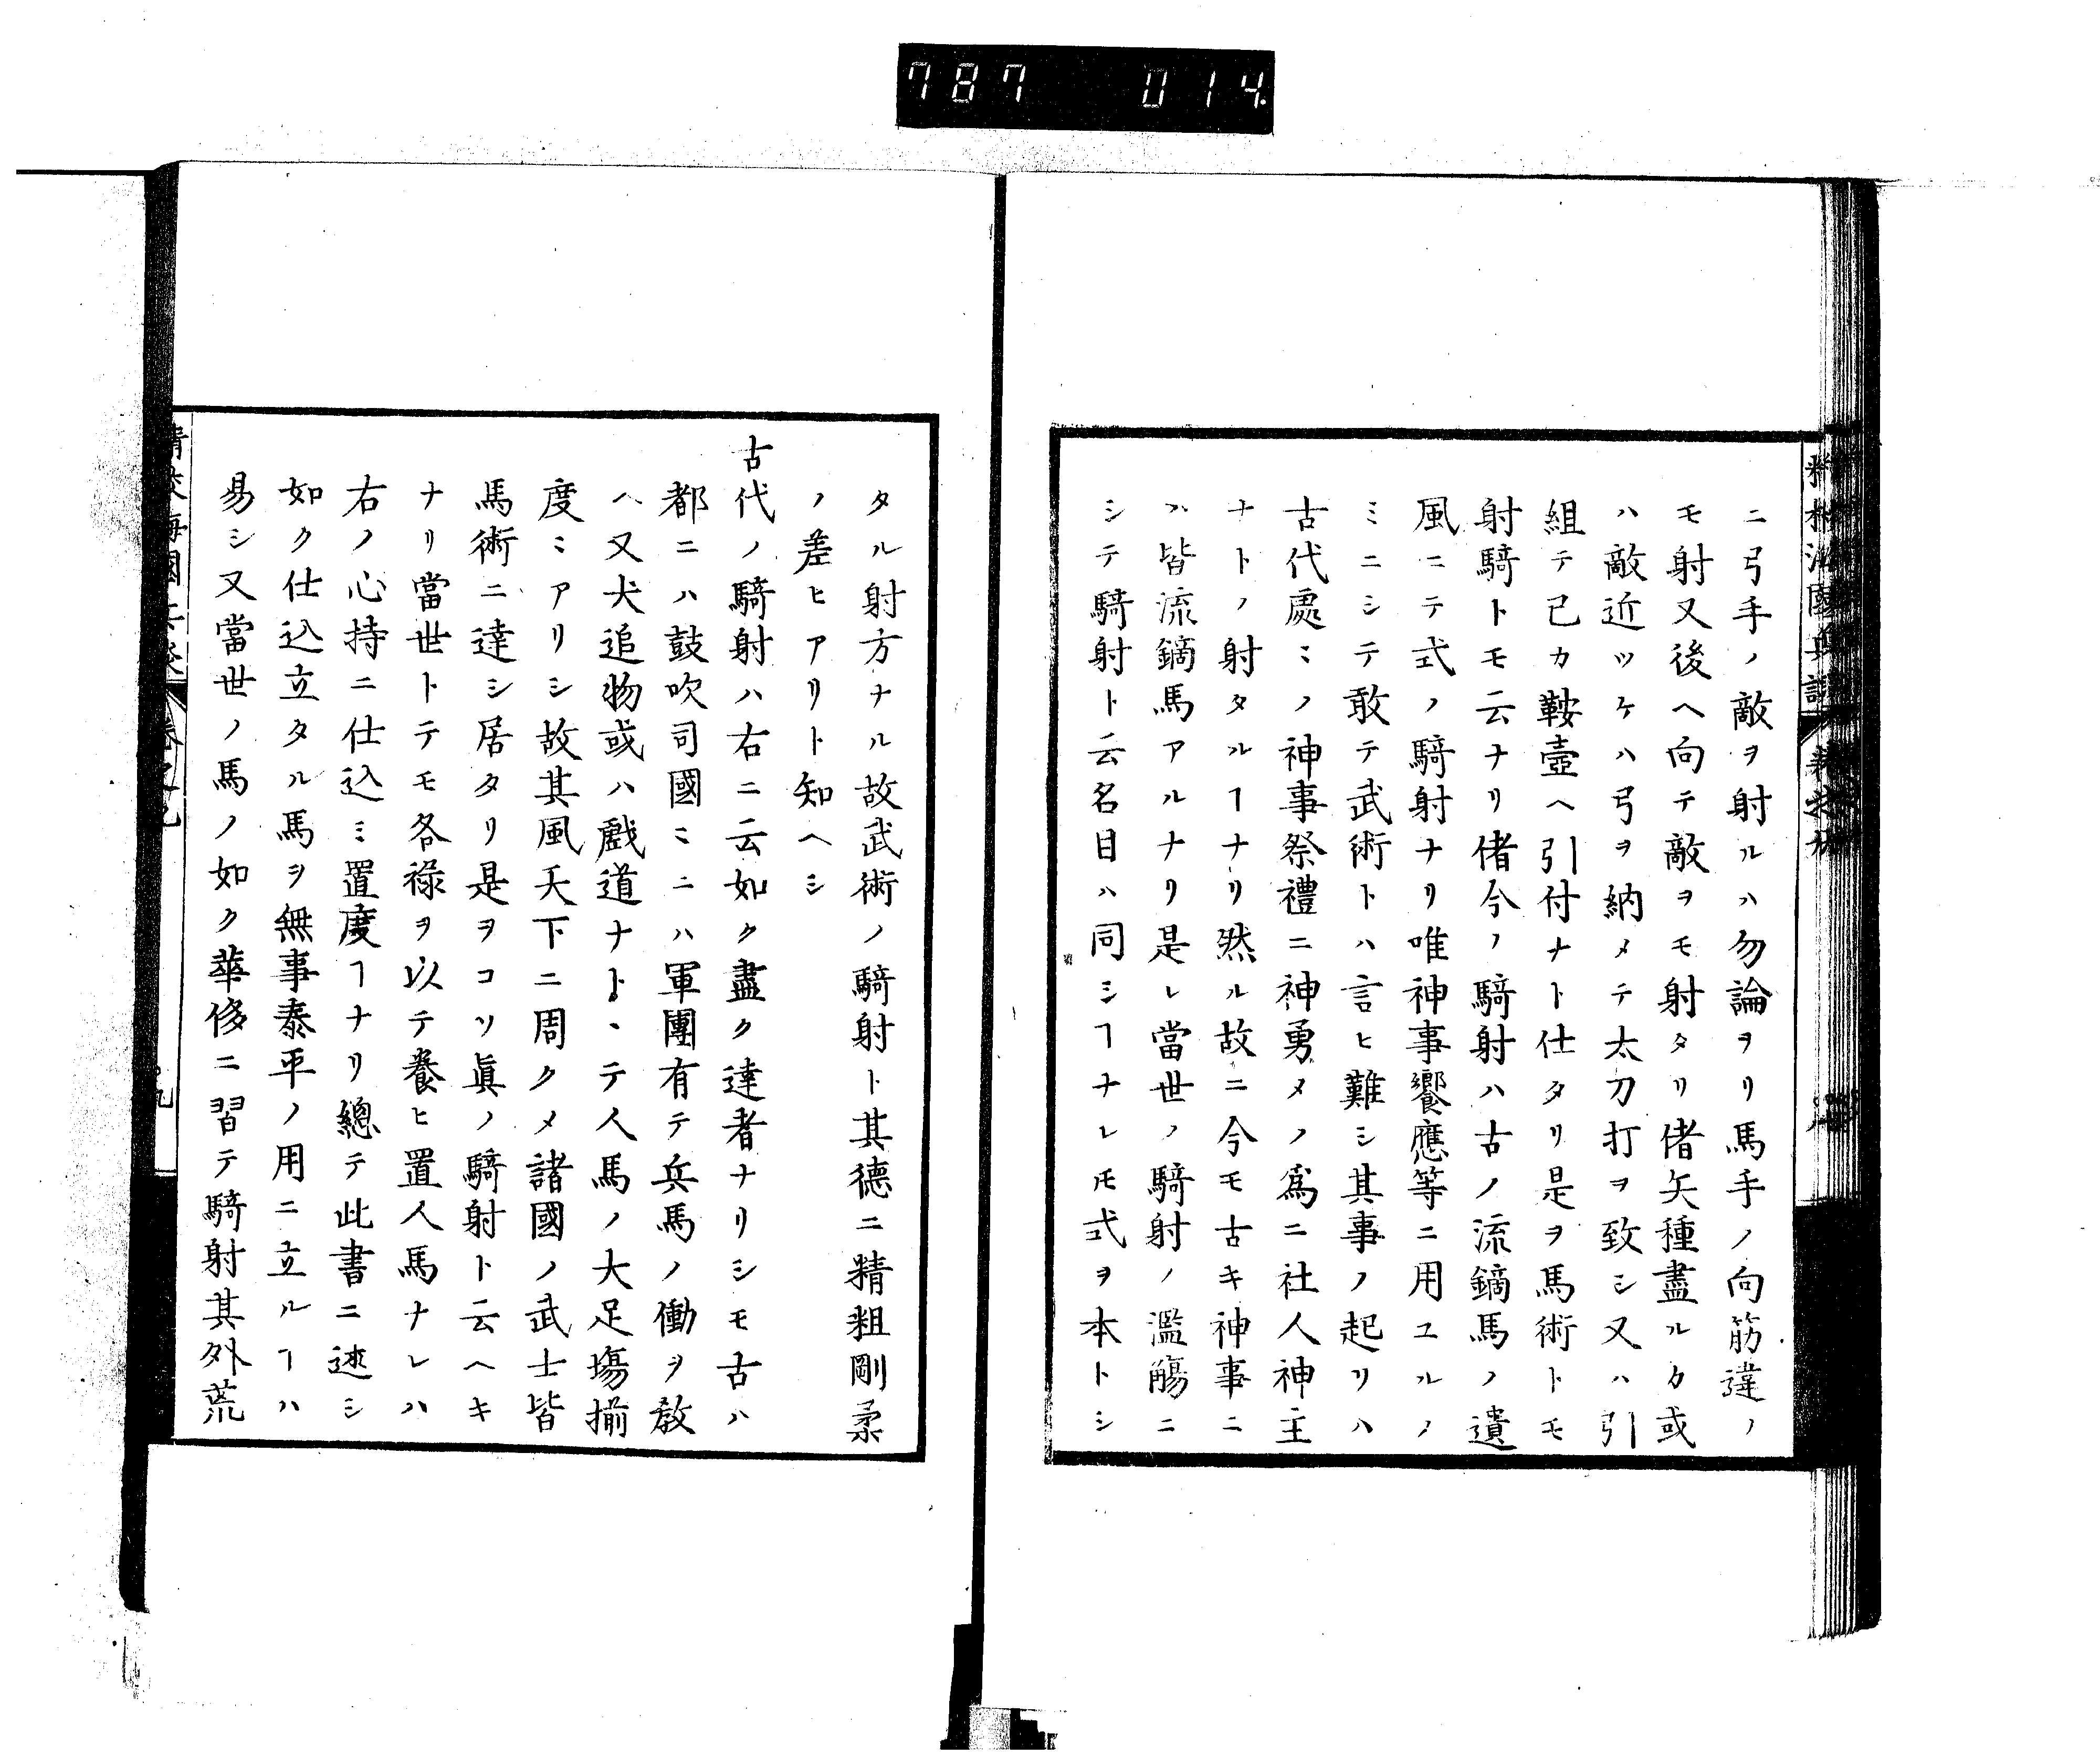 787 014
ニ弓手ノ敵ヲ射ルハ勿論ヲリ馬手ノ向筋違ノ
モ射又後ヘ向テ敵ヲモ射タリ偖矢種盡ルカ或
ハ敵近ツケハ弓ヲ納メテ太刀打ヲ致シ又ハ引
組テ己カ鞍壺ヘ引付ナト仕タリ是ヲ馬術トモ
射騎トモ云ナリ偖今ノ騎射ハ古ノ流鏑馬ノ遺
風ニテ式ノ騎射ナリ唯神事饗應等ニ用ユルノ
ミニシテ敢テ武術トハ言ヒ難シ其事ノ起リハ
古代處〻ノ神事祭禮ニ神勇メノ爲ニ社人神主
ナトノ射タルヿナリ然ル故ニ今モ古キ神事ニ
ハ皆流鏑馬アルナリ是レ當世ノ騎射ノ濫觴ニ
シテ騎射ト云名目ハ同シヿナレ𪜈式ヲ本トシ
タル射方ナル故武術ノ騎射ト其德ニ精粗剛柔
ノ差ヒアリト知ヘシ
古代ノ騎射ハ右ニ云如ク盡ク達者ナリシモ古ハ
都ニハ鼓吹司國〻ニハ軍團有テ兵馬ノ働ヲ教
ヘ又犬追物或ハ戲道ナト、テ人馬ノ大足塲揃
度〻アリシ故其風天下ニ周クメ諸國ノ武士皆
馬術ニ達シ居タリ是ヲコソ眞ノ騎射ト云ヘキ
ナリ當世トテモ各祿ヲ以テ養ヒ置人馬ナレハ
右ノ心持ニ仕込ミ置度ヿナリ總テ此書ニ述シ
如ク仕込立タル馬ヲ無事泰平ノ用ニ立ルヿハ
易シ又當世ノ馬ノ如ク華侈ニ習テ騎射其外荒
海國兵談 卷之